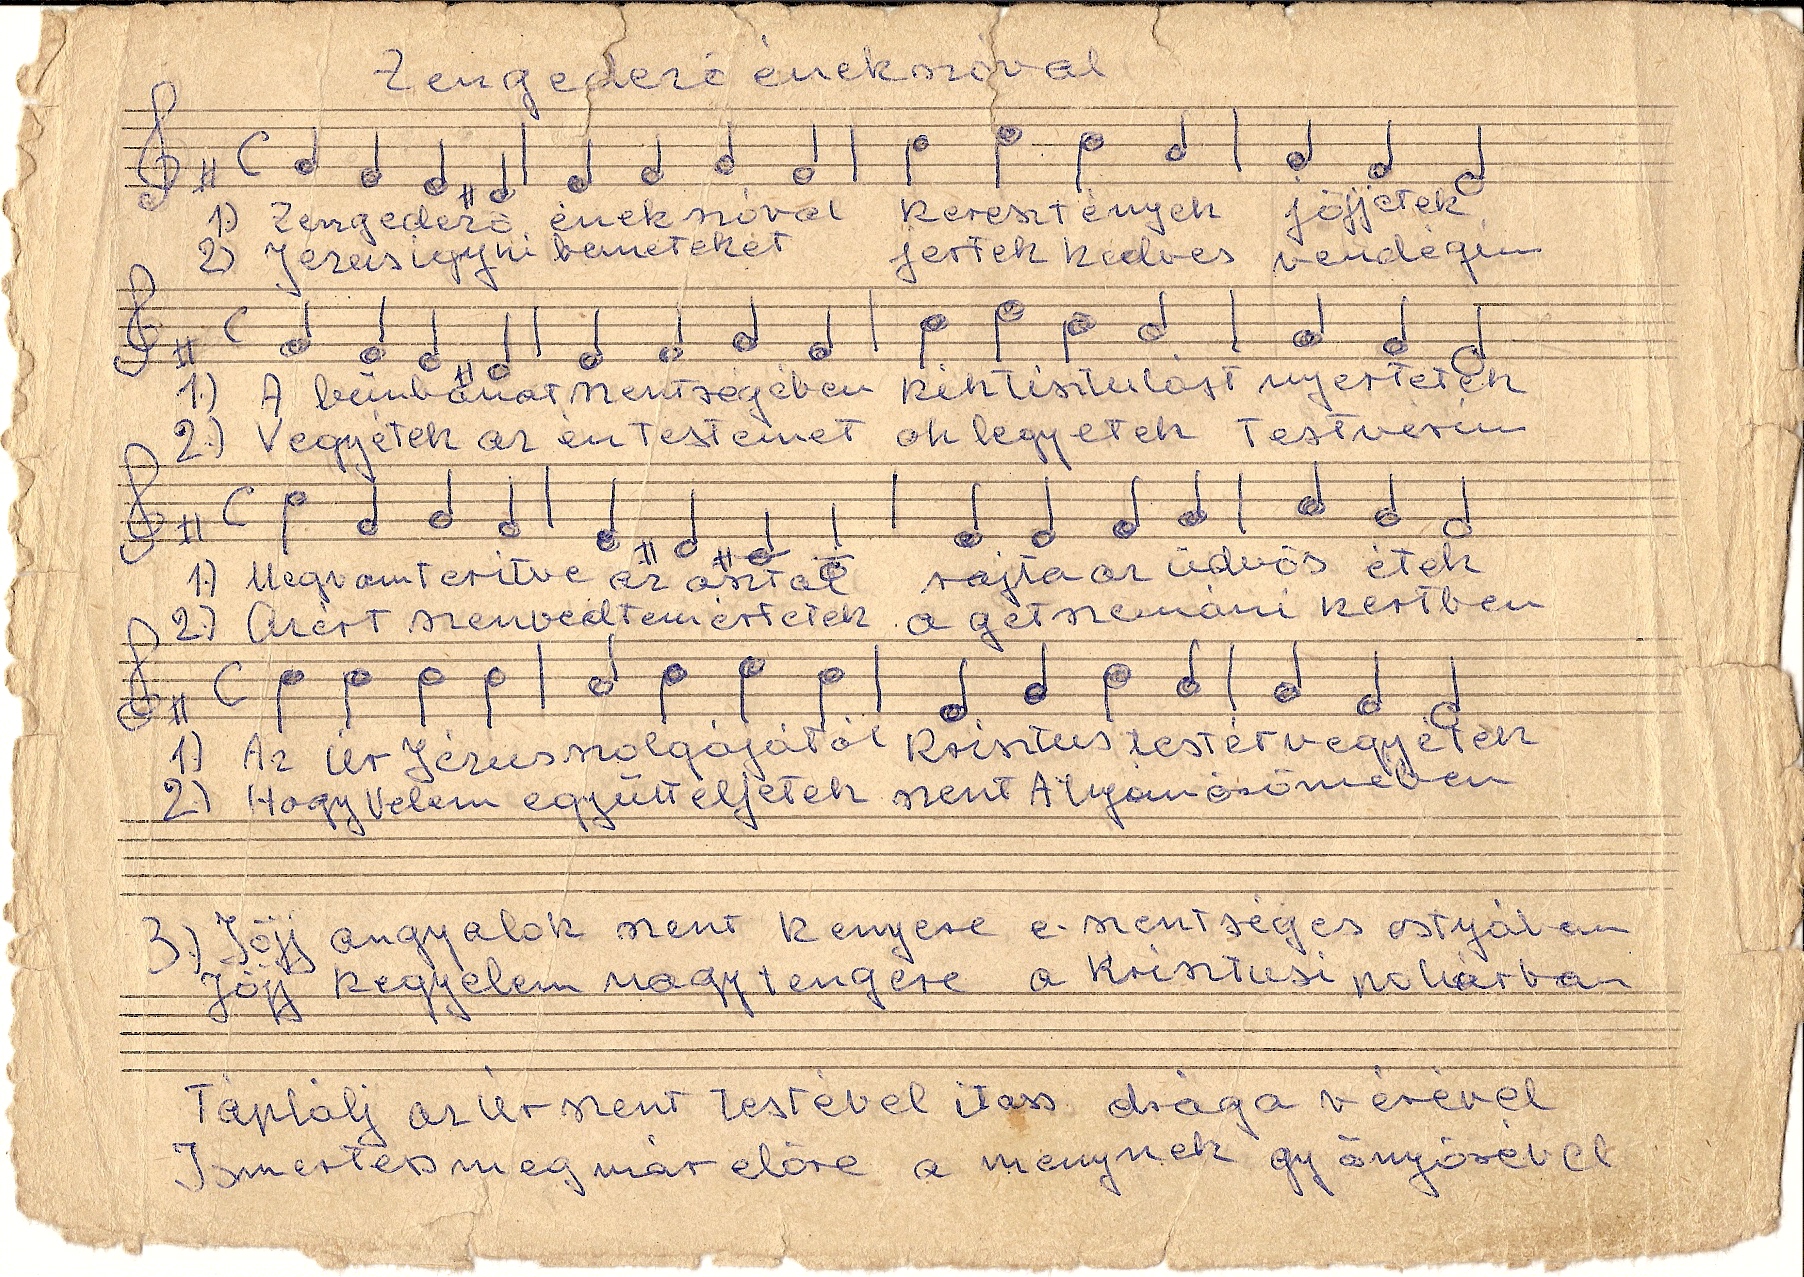 Zengedező énekszóval
1.) Zengedező énekszóval keresztények jöjjetek
2) Jézus így hí benneteket jertek kedves vendégim
1.) A bűnbánat szentségében kik tisztulást nyertetek
2.) Vegyétek az én testemet ok legyetek testvérim
1.) Megvam terítve az asztal rajta az üdvös étek
2.) Azért szenvedtem értetek a getszemáni kertben
1.) Az Úr Jézus szolgájától Krisztus testét vegyétek
2.) Hogy Velem együtt éljetek szent Atyám örömében
3.) Jöjj angyalok szent kenyere e szentséges ostyában
Jöjj kegyelem nagy tengere a Krisztusi pohárban
Táplálj az Úr szent testével itass drága vérével
Ismertess meg már előre a menynek gyönyörével